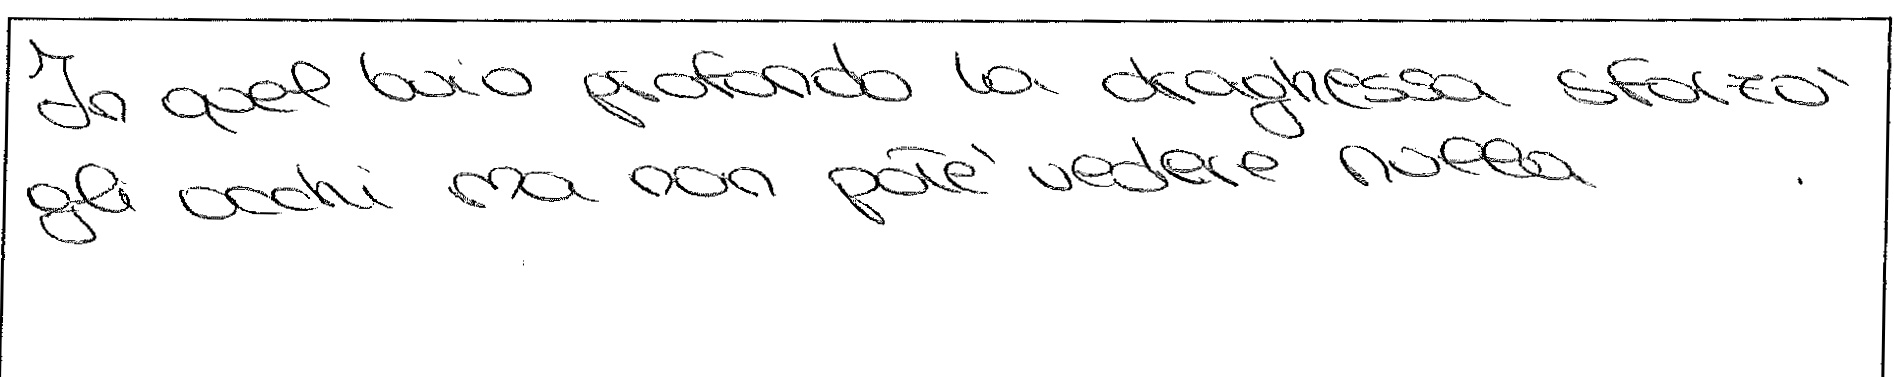 In quel buio profondo la draghessa sforzò
gli occhi ma non potè vedere nulla .